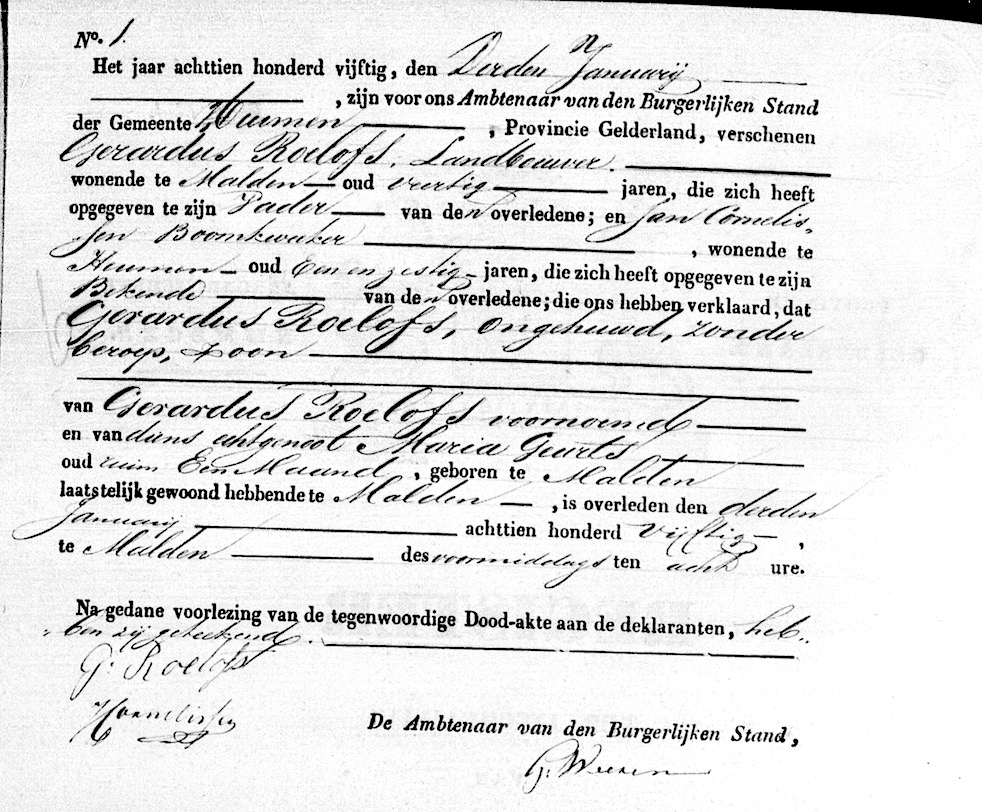 No. 1.
Het jaar achttien honderd vijftig, den Derden Januarij
, zijn voor ons Ambtenaar van den Burgerlijken Stand
der Gemeente Heumen , Provincie Gelderland, verschenen
Gerardus Roelofs, Landbouwer.
wonende te Malden oud veertig jaren, die zich heeft
opgegeven te zijn Vader van den overledene; en Jan Cornelis-
sen Boomkweeker , wonende te
Heumen oud Een en zestig jaren, die zich heeft opgegeven te zijn
Bekende van den overledene; die ons hebben verklaard, dat
Gerardus Roelofs, ongehuwd, zonder
beroep, Zoon
van Gerardus Roelofs voornoemd
en van diens echtgenoot Maria Geurts
oud ruim Een Maand , geboren te Malden
laatstelijk gewoond hebbende te Malden , is overleden den derden
Januarij achttien honderd Vijftig ,
te Malden des voormiddags ten acht ure.
Na gedane voorlezing van de tegenwoordige Dood-akte aan de deklaranten, heb-
ben zij geteekend.
G: Roelofs
De Ambtenaar van den Burgerlijken Stand,